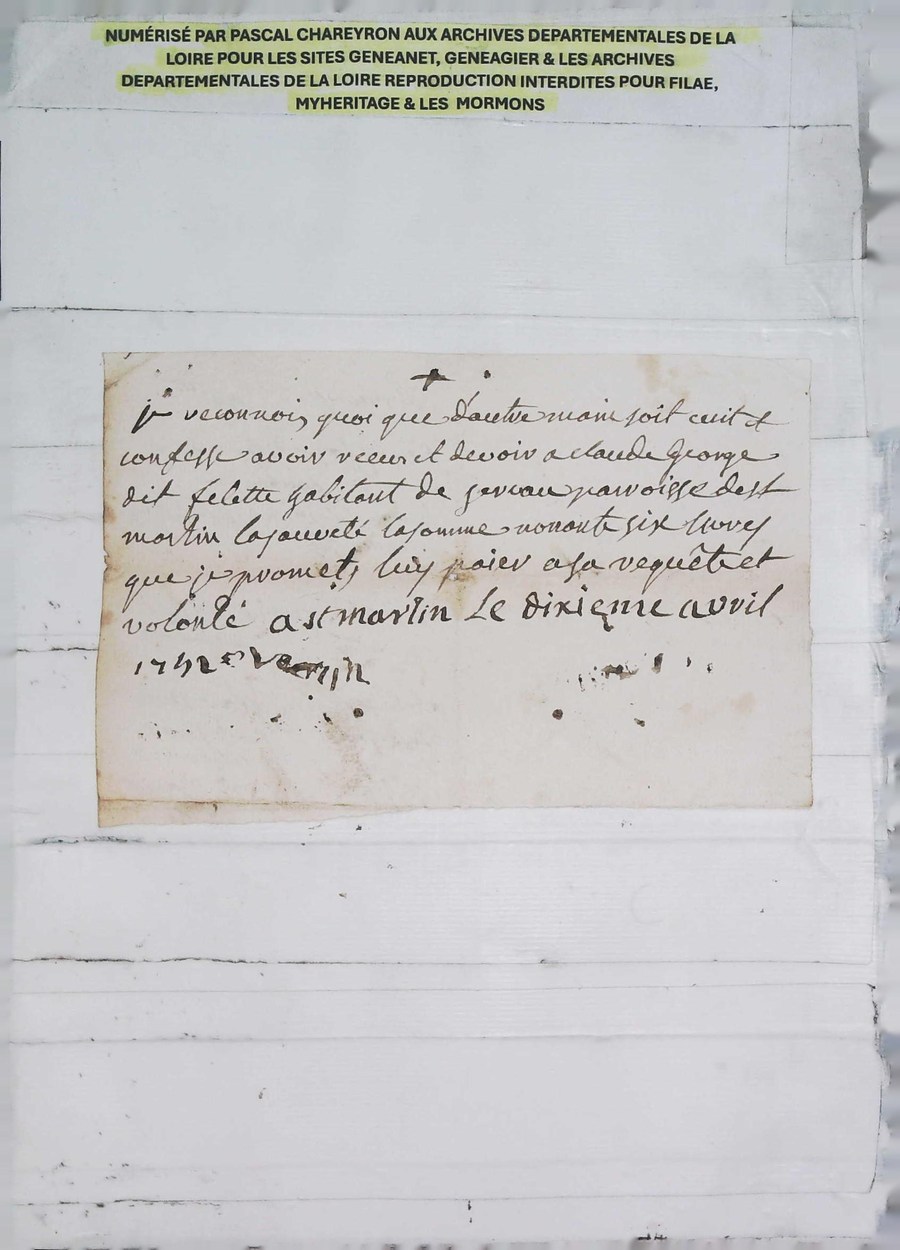 NUMÉRISÉ PAR PASCAL CHAREYRON AUX ARCHIVES DEPARTEMENTALES DE LA
LOIRE POUR LES SITES GENEANET, GENEAGIER & LES ARCHIVES
DEPARTEMENTALES DE LA LOIRE REPRODUCTION INTERDITES POUR FILAE,
MYHERITAGE & LES MORMONS
je reconnois quoi que d'autre main soit ecrit et
confesse avoir receu et devoir a claude george
dit felette habitant de parroisse de st
martin lasauveté lasomme nonante six livres
que je promets luy païer a sa requête et
volonté a st martin Le dixieme avril